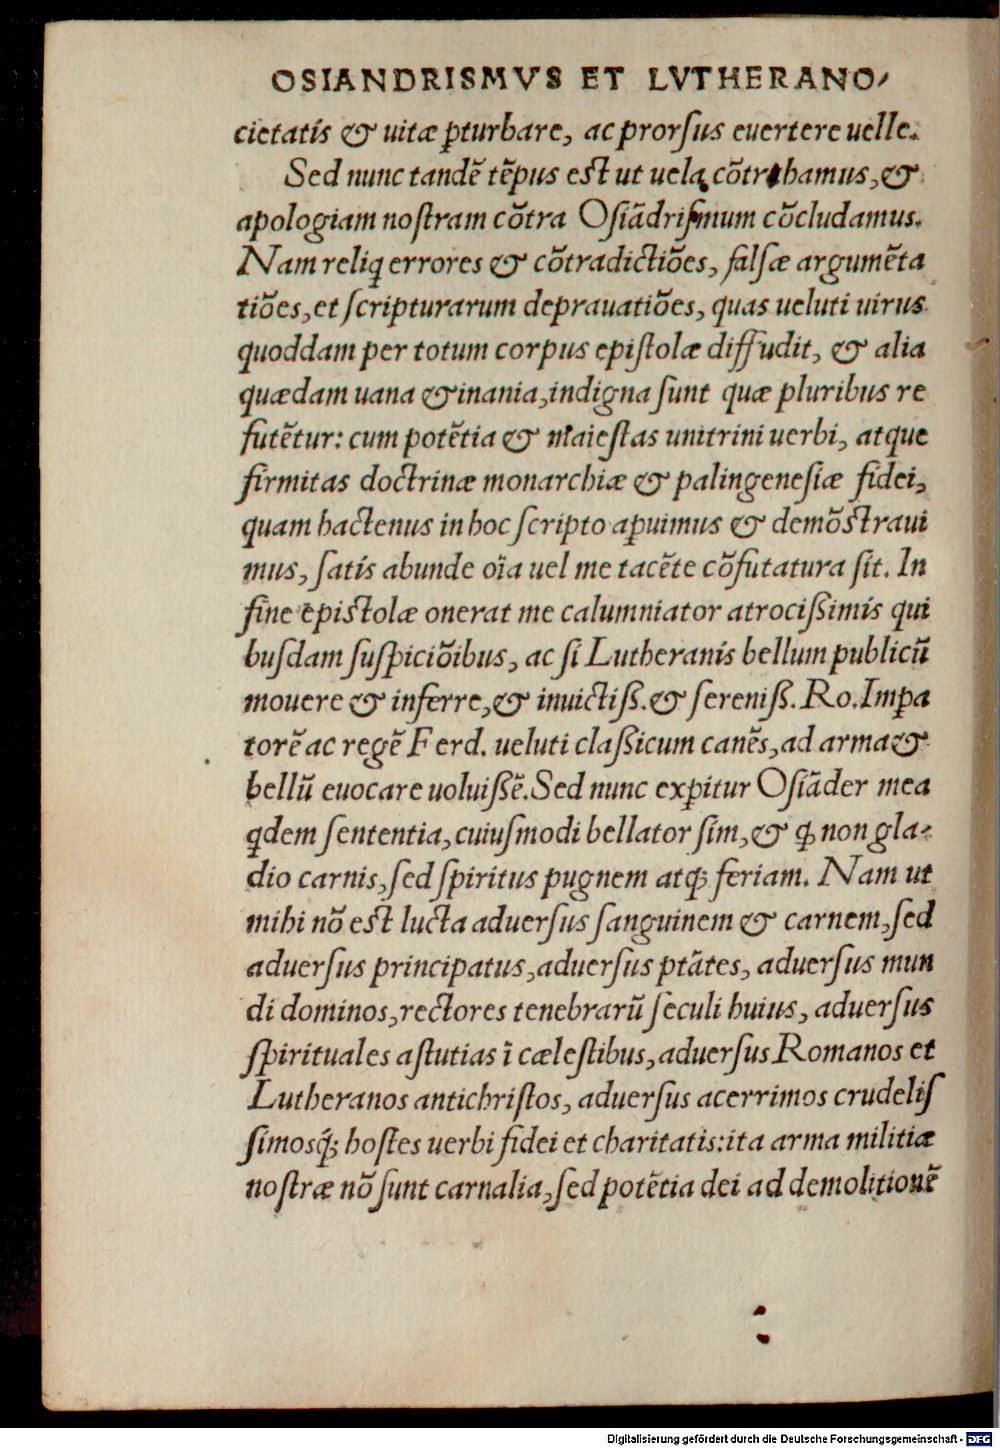 OSIANDRISMVS ET LVTHERANO⸗
cietatis & uitæ ꝑturbare, ac prorſus euertere uelle.
Sed nunc tandē tēpus eſt ut uela cōtrahamus, &
apologiam noſtram cōtra Oſiādriſmum cōcludamus.
Nam reliq̃ errores & cōtradictiōes, falſæ argumēta
tiōes, et ſcripturarum deprauatiōes, quas ueluti uirus
quoddam per totum corpus epiſtolæ diffudit, & alia
quædam uana & inania, indigna ſunt quæ pluribus re
futētur: cum potētia & maieſtas unitrini uerbi, atque
firmitas doctrinæ monarchiæ & palingeneſiæ fidei,
quam hactenus in hoc ſcripto aꝑuimus & demōſtraui
mus, ſatis abunde oīa uel me tacēte cōfutatura ſit. In
fine epiſtolæ onerat me calumniator atrociſſimis qui
buſdam ſuſpiciōibus, ac ſi Lutheranis bellum publicū
mouere & inferre, & inuictiſſ. & ſereniſſ. Ro. Imꝑa
torē ac regē Ferd. ueluti claſſicum canēs, ad arma &
bellū euocare uoluiſſē. Sed nunc exꝑitur Oſiāder mea
q̃dem ſententia, cuiuſmodi bellator ſim, & ꝙ non gla⸗
dio carnis, ſed ſpiritus pugnem atqꝫ feriam. Nam ut
mihi nō eſt lucta aduerſus ſanguinem & carnem, ſed
aduerſus principatus, aduerſus ptātes, aduerſus mun
di dominos, rectores tenebrarū ſeculi huius, aduerſus
ſpirituales aſtutias ī cæleſtibus, aduerſus Romanos et
Lutheranos antichriſtos, aduerſus acerrimos crudeliſ
ſimosqꝫ hoſtes uerbi fidei et charitatis: ita arma militiæ
noſtræ nō ſunt carnalia, ſed potētia dei ad demolitionē
Digitalisierung gefördert durch die Deutsche Forschungsgemeinschaft - DFG